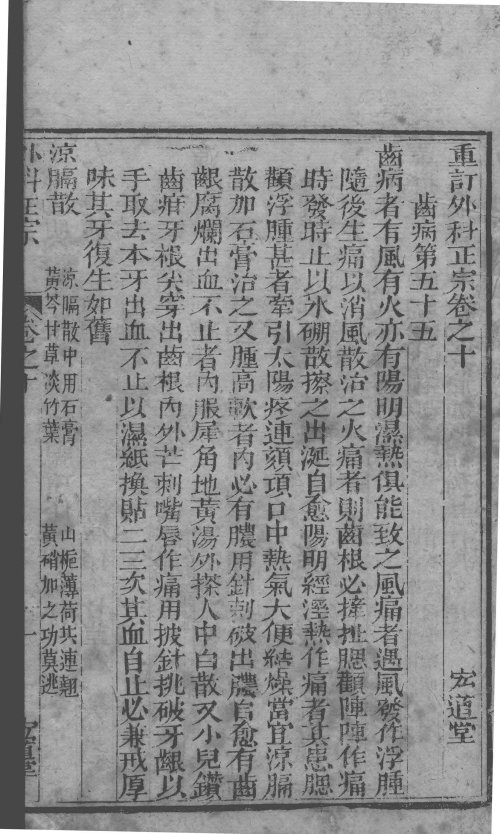 重訂外科正宗卷之十 宏道堂
齒病第五十五
齒病者有風有火亦有陽明濕熱俱能致之風痛者遇風發作浮腫
隨後生痛以消風散治之火痛者則齒根必摧扯腮顴陣陣作痛
時發時止以氷硼散搽之出涎自愈陽明經溼熱作痛者其患腮
顴浮腫甚者牽引太陽疼連頦項口中熱氣大便結燥當宜涼膈
散加石膏治之又腫高軟者內必有膿用針刺破出膿自愈有齒
齦腐爛出血不止者內服犀角地黃湯外搽人中白散又小兒鑽
齒疳牙根尖穿出齒根內外芒刺嘴唇作痛用披針挑破牙齦以
手取去本牙出血不止以濕紙換貼二三次其血自止必兼戒厚
味其牙復生如舊
涼膈散 涼隔散中用石膏 山梔薄荷共連翹
黃芩甘草淡竹葉 黃硝加之功莫逃
外科正宗 卷之十 一 宏道堂